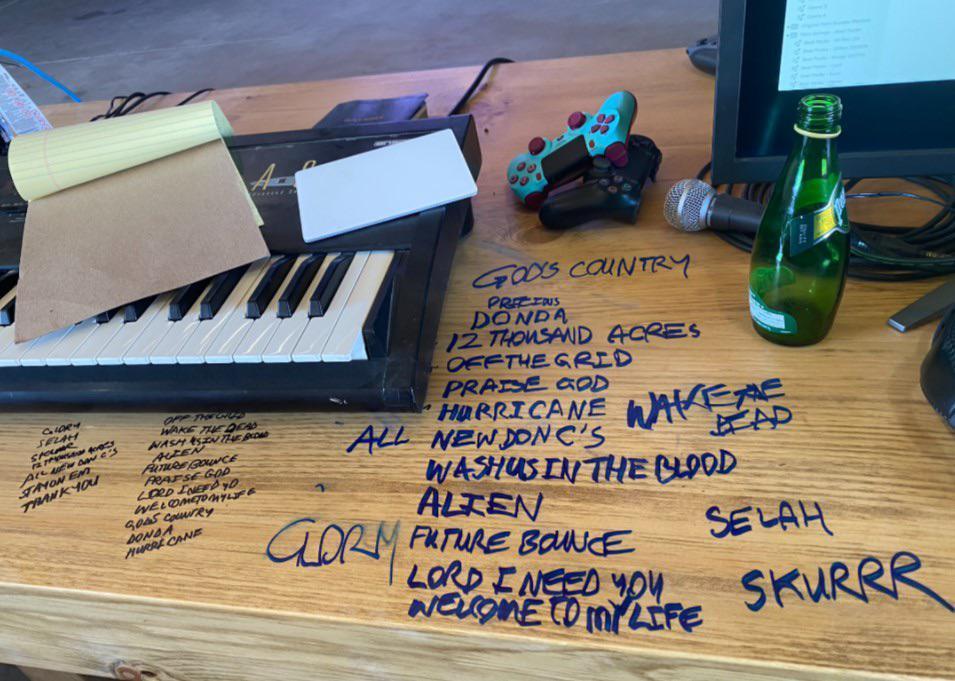 GOD'S COUNTRY
PRECIOUS
DONDA
12 THOUSAND ACRES
OFF THE GRID
PRAISE GOD
HURRICANE
WAKE THE DEAD
ALL NEW DON C'S
WASH US IN THE BLOOD
ALIEN
SELAH
GLORY
FUTURE BOUNCE
LORD I NEED YOU
SKURRR
WELCOME TO MY LIFE
GLORY
SELAH
12 THOUSAND ACRES
ALL NEW DON C'S
STAY ON EM
THANK YOU
OFF THE GRID
WAKE THE DEAD
WASH US IN THE BLOOD
ALIEN
FUTURE BOUNCE
PRAISE GOD
LORD I NEED YO
WELCOME TO MY LIFE
GOD'S COUNTRY
DONDA
HURRICANE